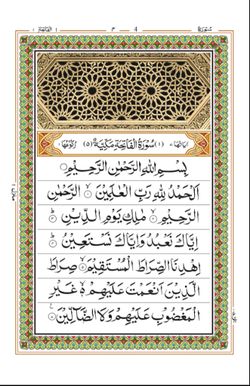 الفاتحة ١
4
سورة
سورة الفاتحة مكية
بِسْمِ اللّٰهِ الرَّحْمٰنِ الرَّحِيْمِ
اَلْحَمْدُ لِلّٰهِ رَبِّ الْعٰلَمِيْنَ ۙ الرَّحْمٰنِ
الرَّحِيْمِ ۙ مٰلِكِ يَوْمِ الدِّيْنِ ؕ
اِيَّاكَ نَعْبُدُ وَاِيَّاكَ نَسْتَعِيْنُ ؕ
اِهْدِنَا الصِّرَاطَ الْمُسْتَقِيْمَ ۙ صِرَاطَ
الَّذِيْنَ اَنْعَمْتَ عَلَيْهِمْ ۙ غَيْرِ
الْمَغْضُوْبِ عَلَيْهِمْ وَلَا الضَّآلِّيْنَ